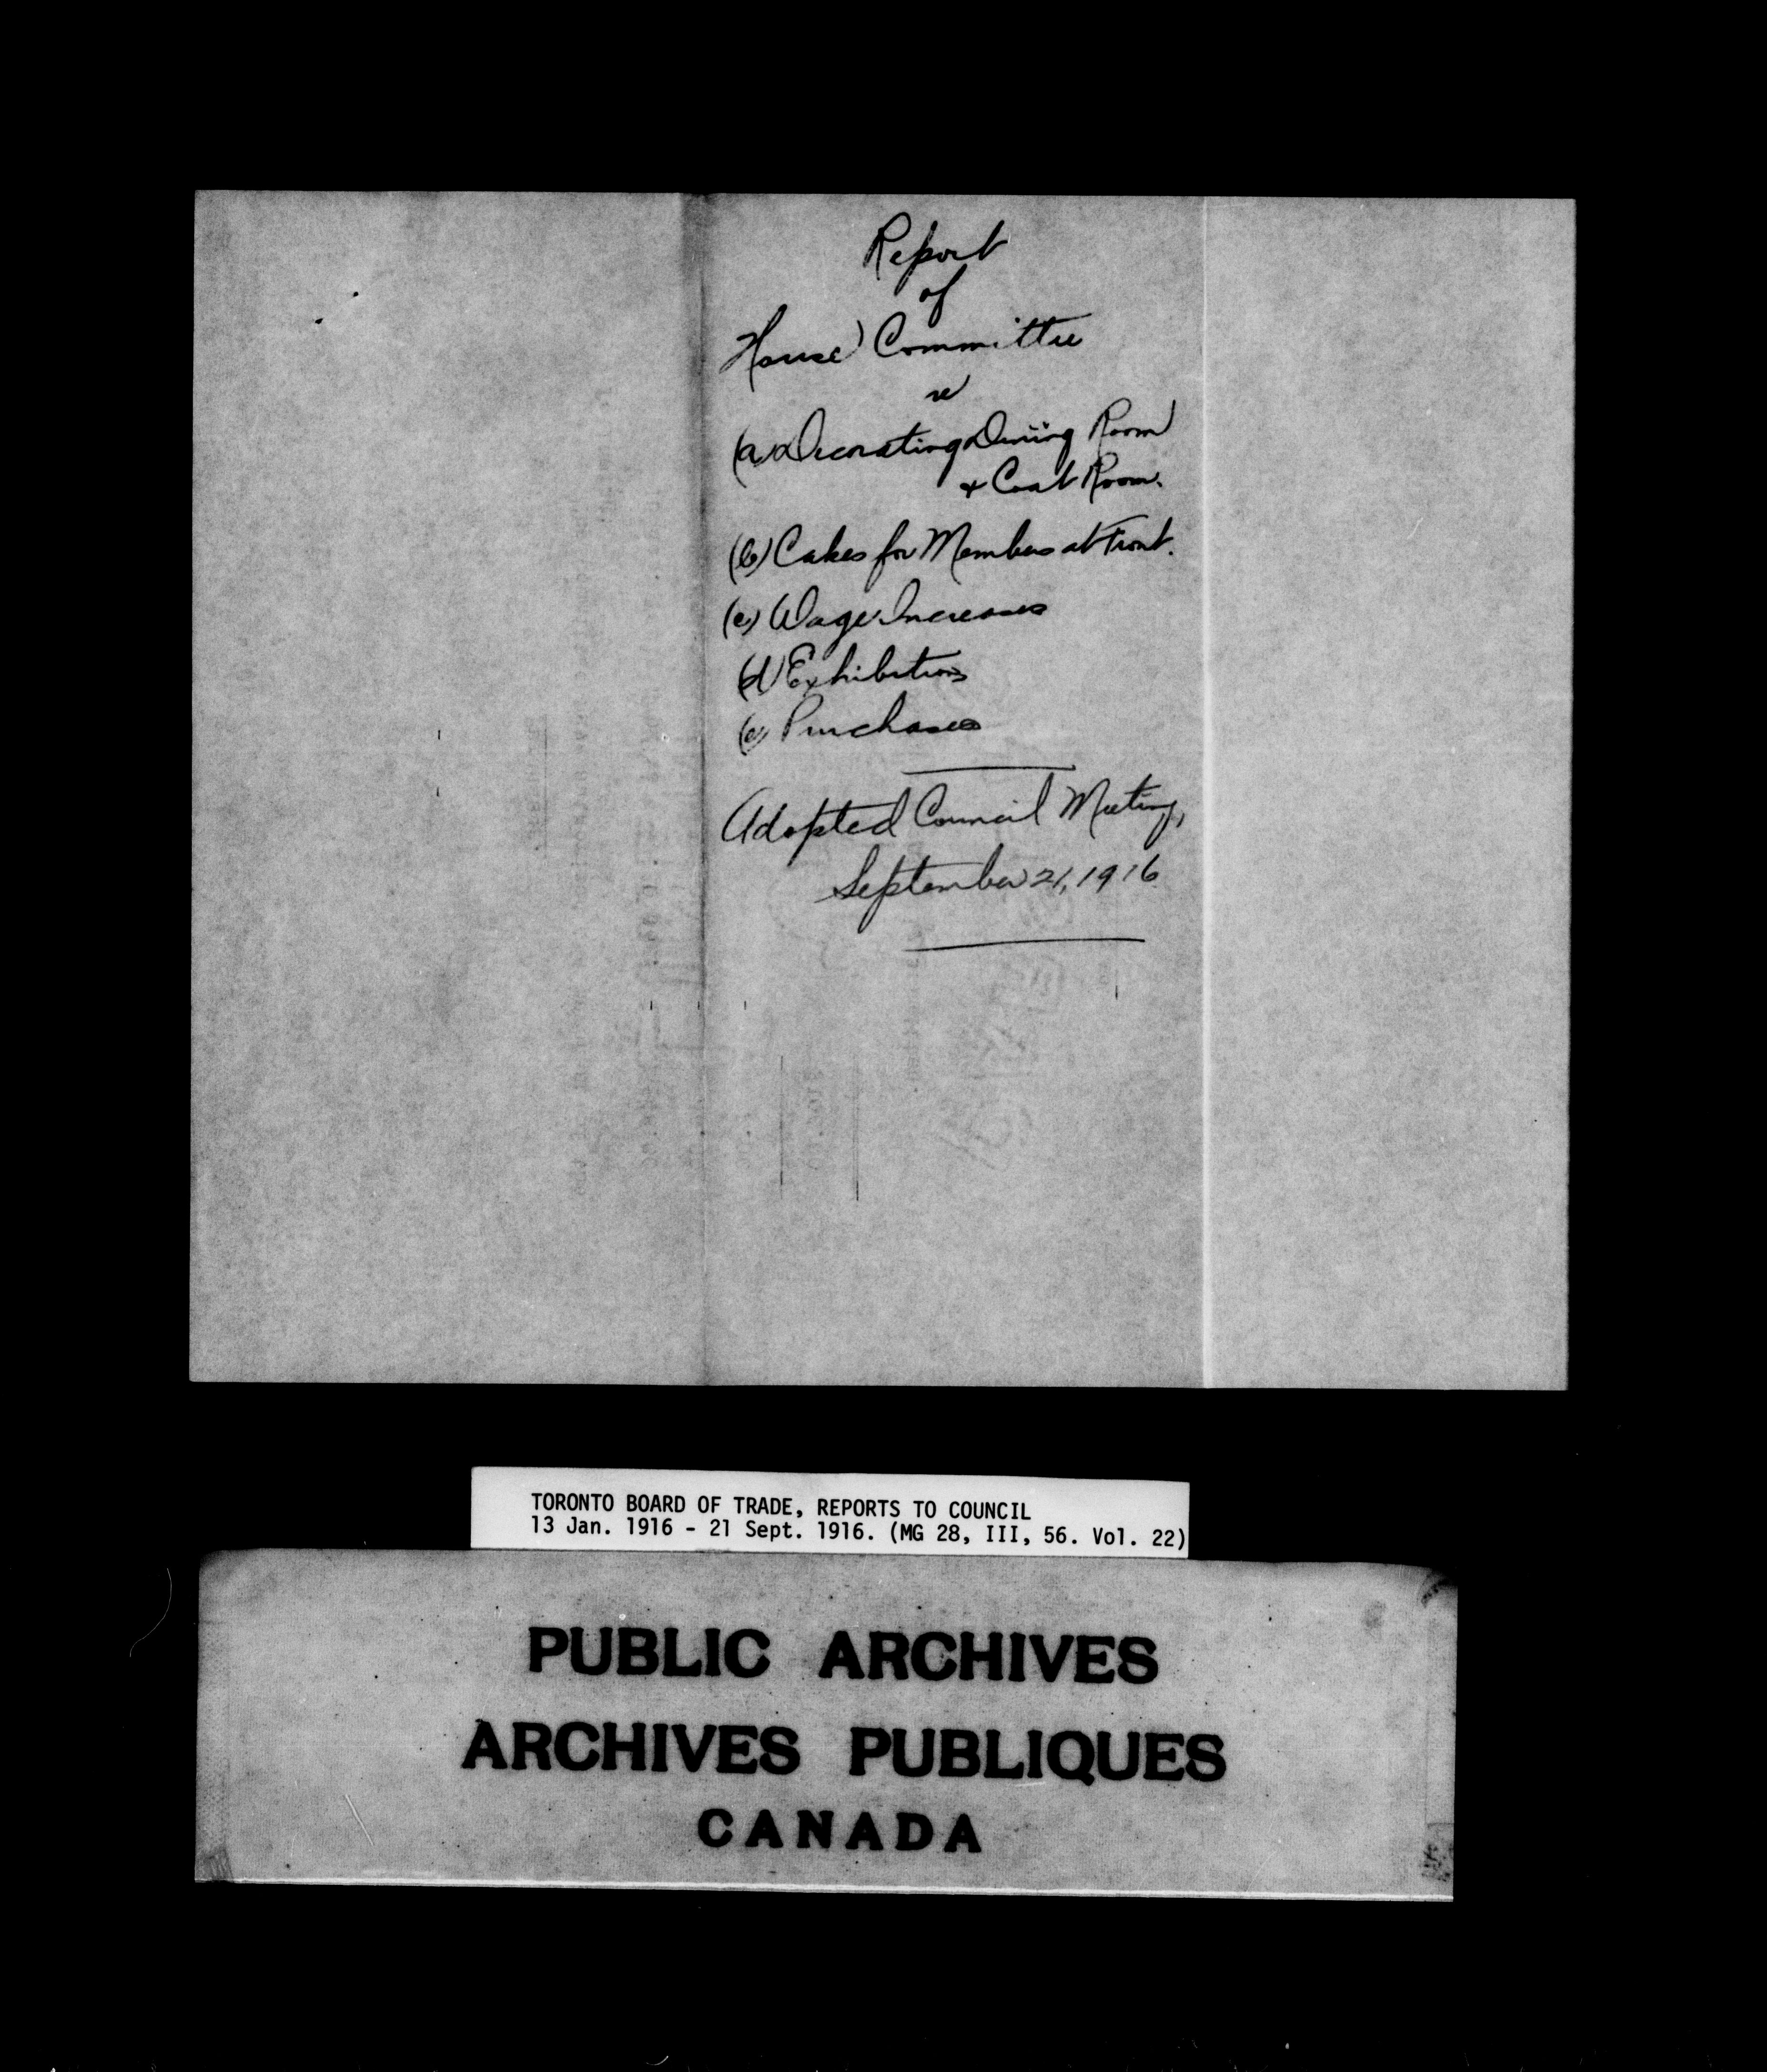 Report
of
House Committee
re
(a) Decorating Dining Room
+ Coat Room.
(b) Cakes for Members at Front.
(c) Wage Increases
(d) Exhibition
(e) Purchases
Adopted Council Meeting,
September 21, 1916
TORONTO BOARD OF TRADE, REPORTS TO COUNCIL
13 Jan. 1916 - 21 Sept. 1916. (MG 28, III, 56. Vol. 22)
PUBLIC ARCHIVES
ARCHIVES PUBLIQUES
CANADA